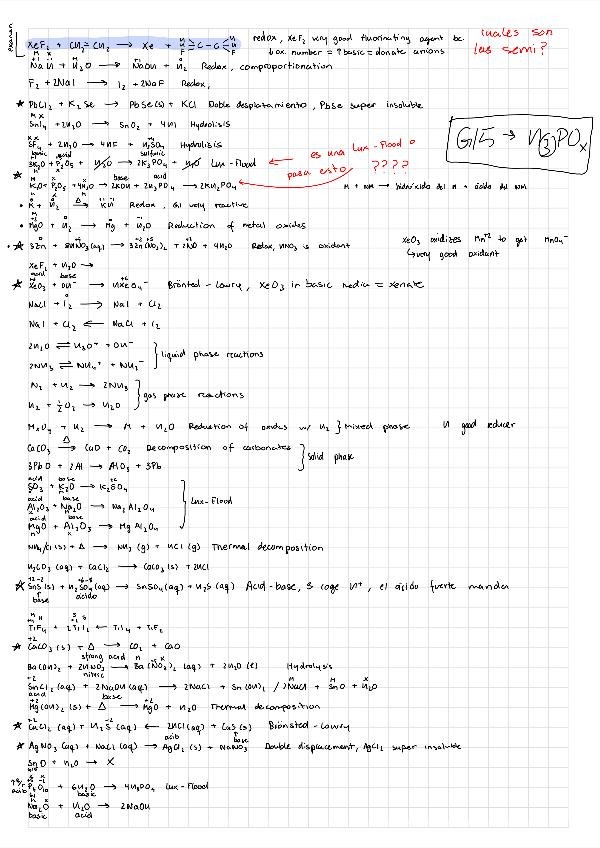 XeF₂ + CH₂=CH₂ → Xe + C-C redox, XeF₂ very good fluorinating agent bc. cuales son
↳ ox. number = ↑basic = donate anions las semi?
NaH + H₂O → NaOH + H₂ Redox, comproportionation
F₂ + 2NaI → I₂ + 2NaF Redox,
★ PbCl₂ + K₂Se → PbSe(s) + KCl Doble desplatamiento, PbSe super insoluble
SnI₄ + 2H₂O → SnO₂ + 4HI Hydrolisis
SF₆ + 4H₂O → 6HF + H₂SO₄ Hydrolisis
basic acid sulfuric
3K₂O + P₂O₅ + H₂O → 2K₃PO₄ + H₂O Lux-Flood ← es una Lux-Flood o
G15 → H₃POₓ
pasa esto ????
base acid
★ K₂O + P₂O₅ + 4H₂O → 2KOH + 2H₃PO₄ → 2KH₂PO₄ M + NM → hidróxido del M + ácido del NM
• K + H₂ → KH Redox, G1 very reactive
• MgO + H₂ → Mg + H₂O Reduction of metal oxides
• ★ 3Zn + 8HNO₃(aq) → 3Zn(NO₃)₂ + 2NO + 4H₂O Redox, HNO₃ is oxidant XeO₃ oxidizes Mn⁺² to get MnO₄⁻
↳ very good oxidant
XeF₂ + H₂O →
acid base
★ XeO₃ + OH⁻ → HXeO₄⁻ Brönted-Lowry, XeO₃ in basic media = xenate
NaCl + I₂ → NaI + Cl₂
NaI + Cl₂ ← NaCl + I₂
2H₂O ⇌ H₃O⁺ + OH⁻
liquid phase reactions
2NH₃ ⇌ NH₄⁺ + NH₂⁻
N₂ + H₂ → 2NH₃
gas phase reactions
H₂ + ½O₂ → H₂O
MₓOᵧ + H₂ → M + H₂O Reduction of oxides w/ H₂ } Mixed phase H good reducer
Δ
CaCO₃ → CaO + CO₂ Decomposition of carbonates
solid phase
3PbO + 2Al → Al₂O₃ + 3Pb
acid base
SO₃ + K₂O → K₂SO₄
acid base
Al₂O₃ + Na₂O → Na₂Al₂O₄ Lux-Flood
acid base
MgO + Al₂O₃ → MgAl₂O₄
NH₄Cl(s) + Δ → NH₃(g) + HCl(g) Thermal decomposition
H₂CO₃(aq) + CaCl₂ → CaCO₃(s) + 2HCl
★ SnS(s) + H₂SO₄(aq) → SnSO₄(aq) + H₂S(aq) Acid-base, S coge H⁺, el ácido fuerte manda
base ácido
TiF₄ + 2TiI₂ ← TiI₄ + TiF₂
★ CaCO₃(s) + Δ → CO₂ + CaO
strong acid
Ba(OH)₂ + 2HNO₃ → Ba(NO₃)₂(aq) + 2H₂O(l) Hydrolysis
nitric
SnCl₂(aq) + 2NaOH(aq) → 2NaCl + Sn(OH)₂ / 2NaCl + SnO + H₂O
acid base
Mg(OH)₂(s) + Δ → MgO + H₂O Thermal decomposition
★ CaCl₂(aq) + H₂S(aq) ← 2HCl(aq) + CaS(s) Brönsted-Lowry
acid base
★ AgNO₃(aq) + NaCl(aq) → AgCl₂(s) + NaNO₃ Double displacement, AgCl₂ super insoluble
SnO + H₂O → X
P₄O₁₀ + 6H₂O → 4H₃PO₄ Lux-Flood
acid basic
Na₂O + H₂O → 2NaOH
basic acid